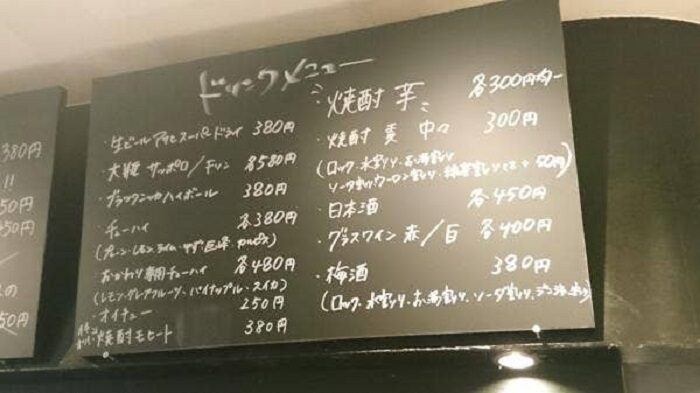 ドリンクメニュー
・生ビール アサヒスーパードライ 380円
・大瓶 サッポロ/キリン 各580円
・ブラックニッカハイボール 380円
・チューハイ 各380円
(プレーン・レモン・ライム・ゆず・巨峰・カルピス)
おかわり専用チューハイ 各480円
(レモン・グレープフルーツ・パイナップル・スイカ)
・オイチュー 250円
焼酎モヒート 380円
・焼酎 芋 各300円均一
・焼酎 麦 中々 300円
(ロック、水割り、お湯割り
ソーダ割り、ウーロン割り、緑茶割りは+50円)
・日本酒 各450円
・グラスワイン 赤/白 各400円
・梅酒 380円
(ロック、水割り、お湯割り、ソーダ割り)
380円
!!
50円
450円
の
50円